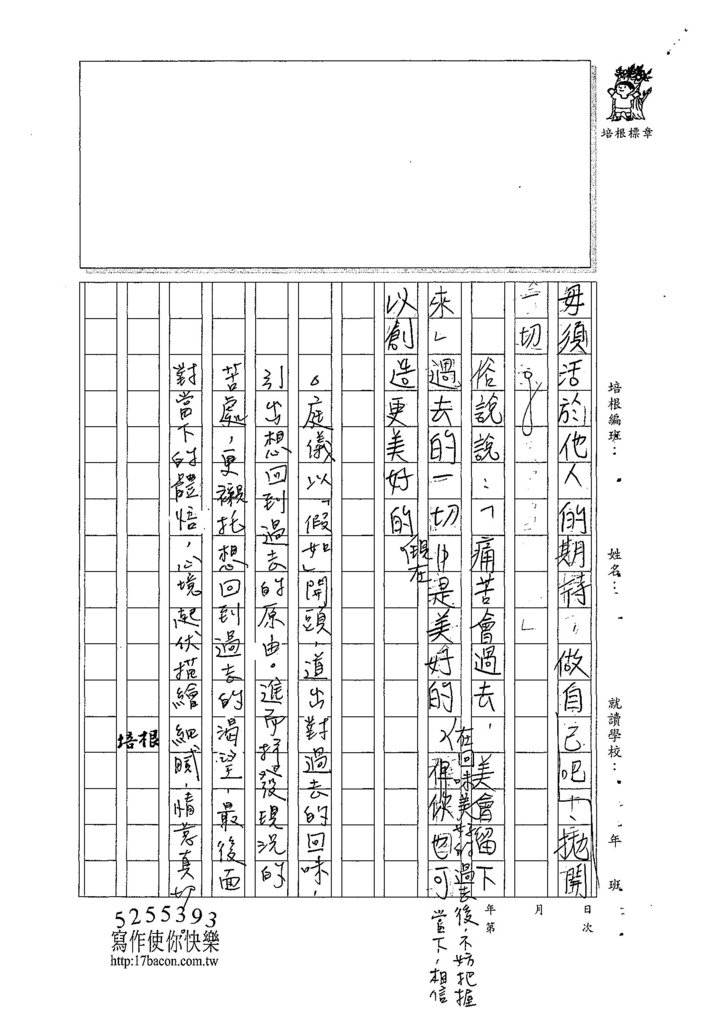 培根標章
培根編班：
姓名：
就讀學校：
年
班
毋須活於他人的期待，做自己吧！拋開
一切
俗說說：「痛苦會過去，美會留下
來」過去的一切是美好的，但你也可
在回味美好的過去後，不妨把握
當下，相信
以創造更美好的
現在
庭儀以「假如」開頭，道出對過去的回味，
引出想回到過去的原由。進而抒發現況的
苦處，更襯托想回到過去的渴望，最後面
對當下的體悟，心境起伏描繪細膩，情意真切
培根
年
月
日
第
次
5255393
寫作使你快樂
http:17bacon.com.tw